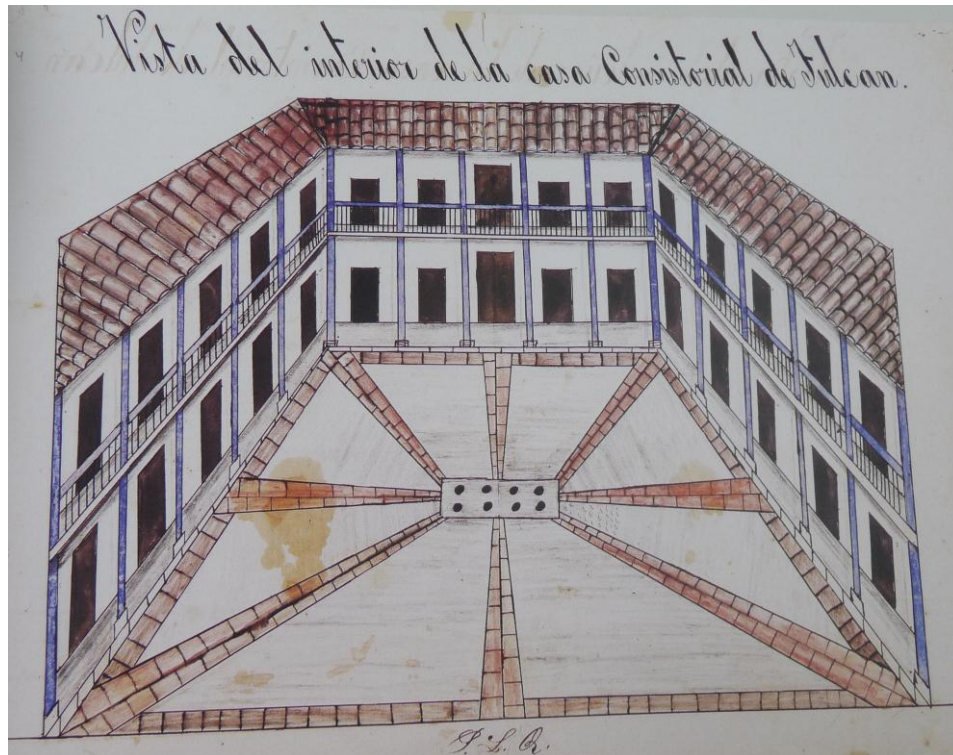 Vista del interior de la casa Consistorial de Tulcan.